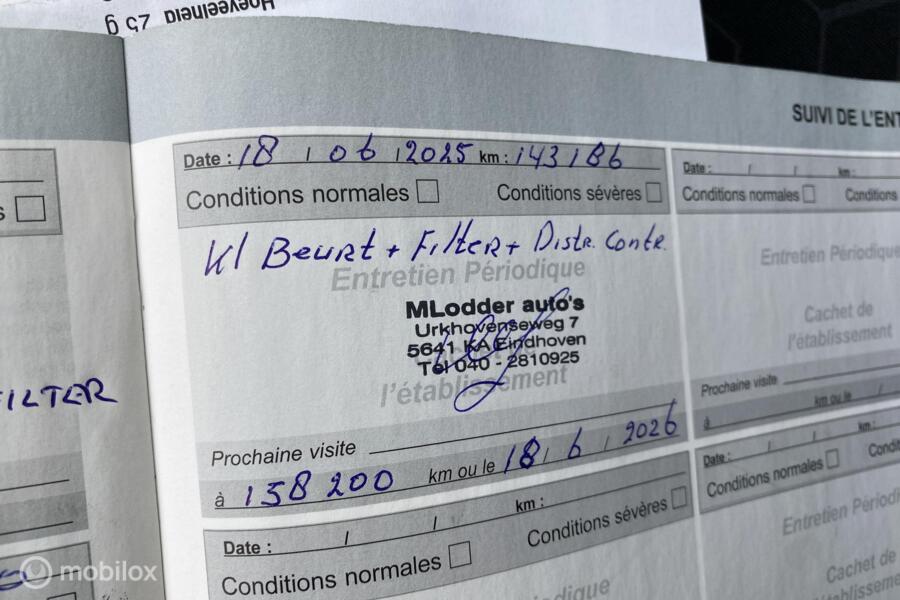 Hoeveelheid 75 g
SUIVI DE L'ENT
Date : 18 / 06 / 2025 km : 143186
Conditions normales Conditions sévères
Kl Beurt + Filter + Distr. Contr.
Entretien Périodique
MLodder auto's
Urkhovenseweg 7
5641 KA Eindhoven
Tel 040 - 2810925
Cachet de
l'établissement
Prochaine visite
à 158 200 km ou le 18 / 6 / 2026
Date : / / km :
Conditions normales Conditions sévères
Date : / / km :
Conditions normales Conditions
Entretien Périodique
Cachet de
l'établissement
Prochaine visite
à km ou le /
Date : / / km :
Conditions normales Condi
Entretien Périod
Cachet de
l'établisseme
FILTER
mobilox